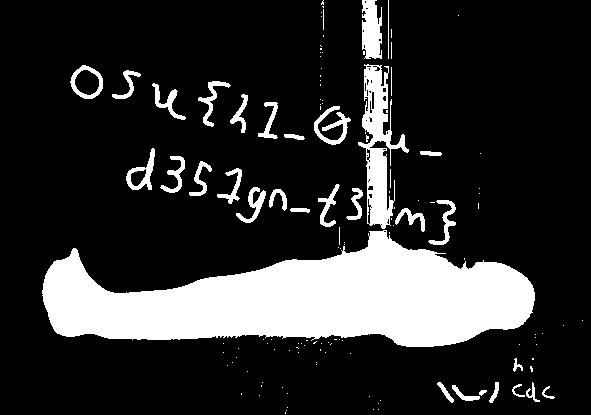 osu{h1_0su_
d351gn_t3 m}
hi
cdc